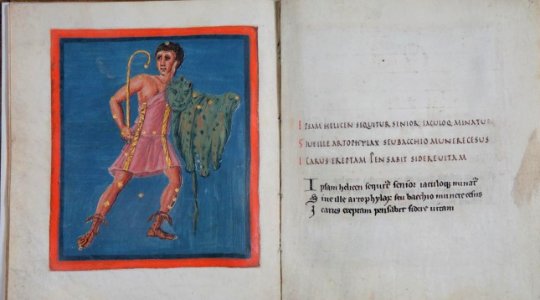 IPSAM HELICEN SEQUITUR SINIOR IACULOQ MINATUR
SIUE ILLE ARTOPHYLAX SEU BACCHIO MUNERE CESUS
ICARUS EREPTAM PENSABIT SIDERE UITAM
Ipsam helicen senior iaculoq
Siue ille artophylax seu bacchio munere cesus
Icarus ereptam pensabit sidere uitam